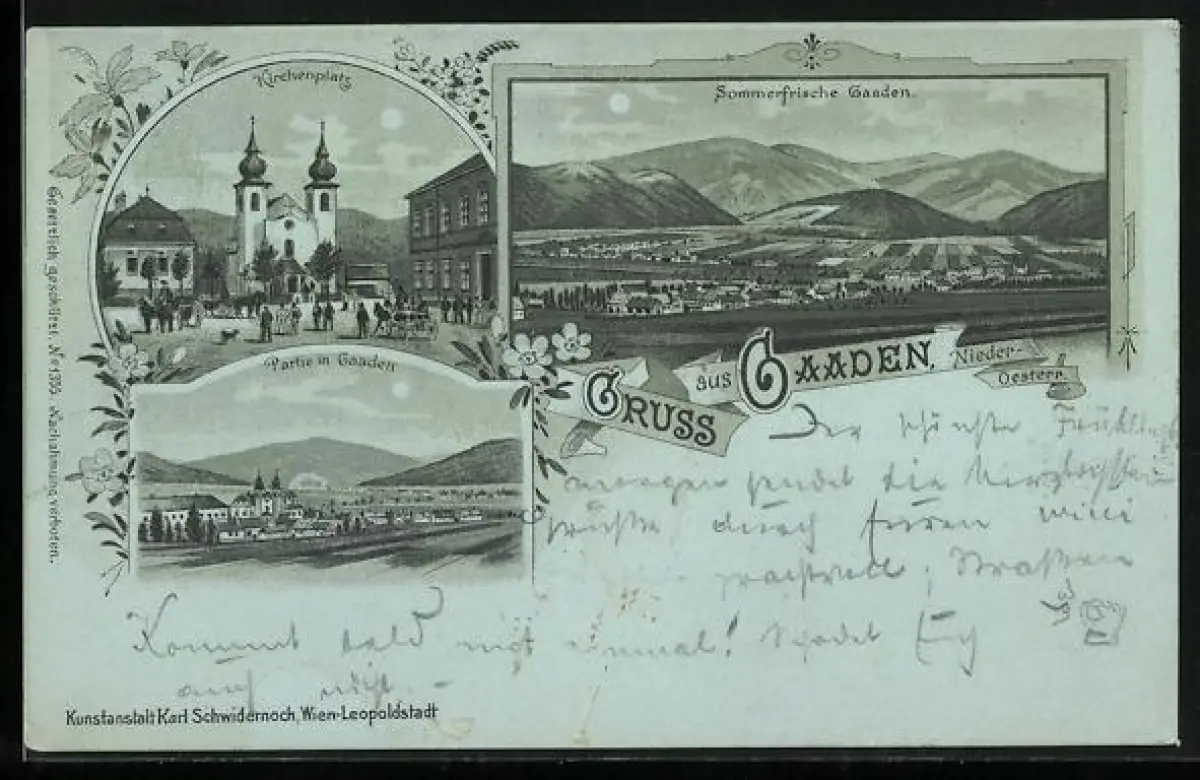 Kirchenplatz
Sommerfrische Gaaden.
Partie in Gaaden
Gesetzlich geschützt. Nº 1355 Nachahmung verboten.
GRUSS aus GAADEN, Nieder-
Oesterr.
Der schönste Frühlings
morgen sendet die
Grüsse durch
prachtvoll, Straßen
Kommt bald mit einmal! Schadet Euch
auch nicht. -
Kunstanstalt Karl Schwidernoch, Wien-Leopoldstadt